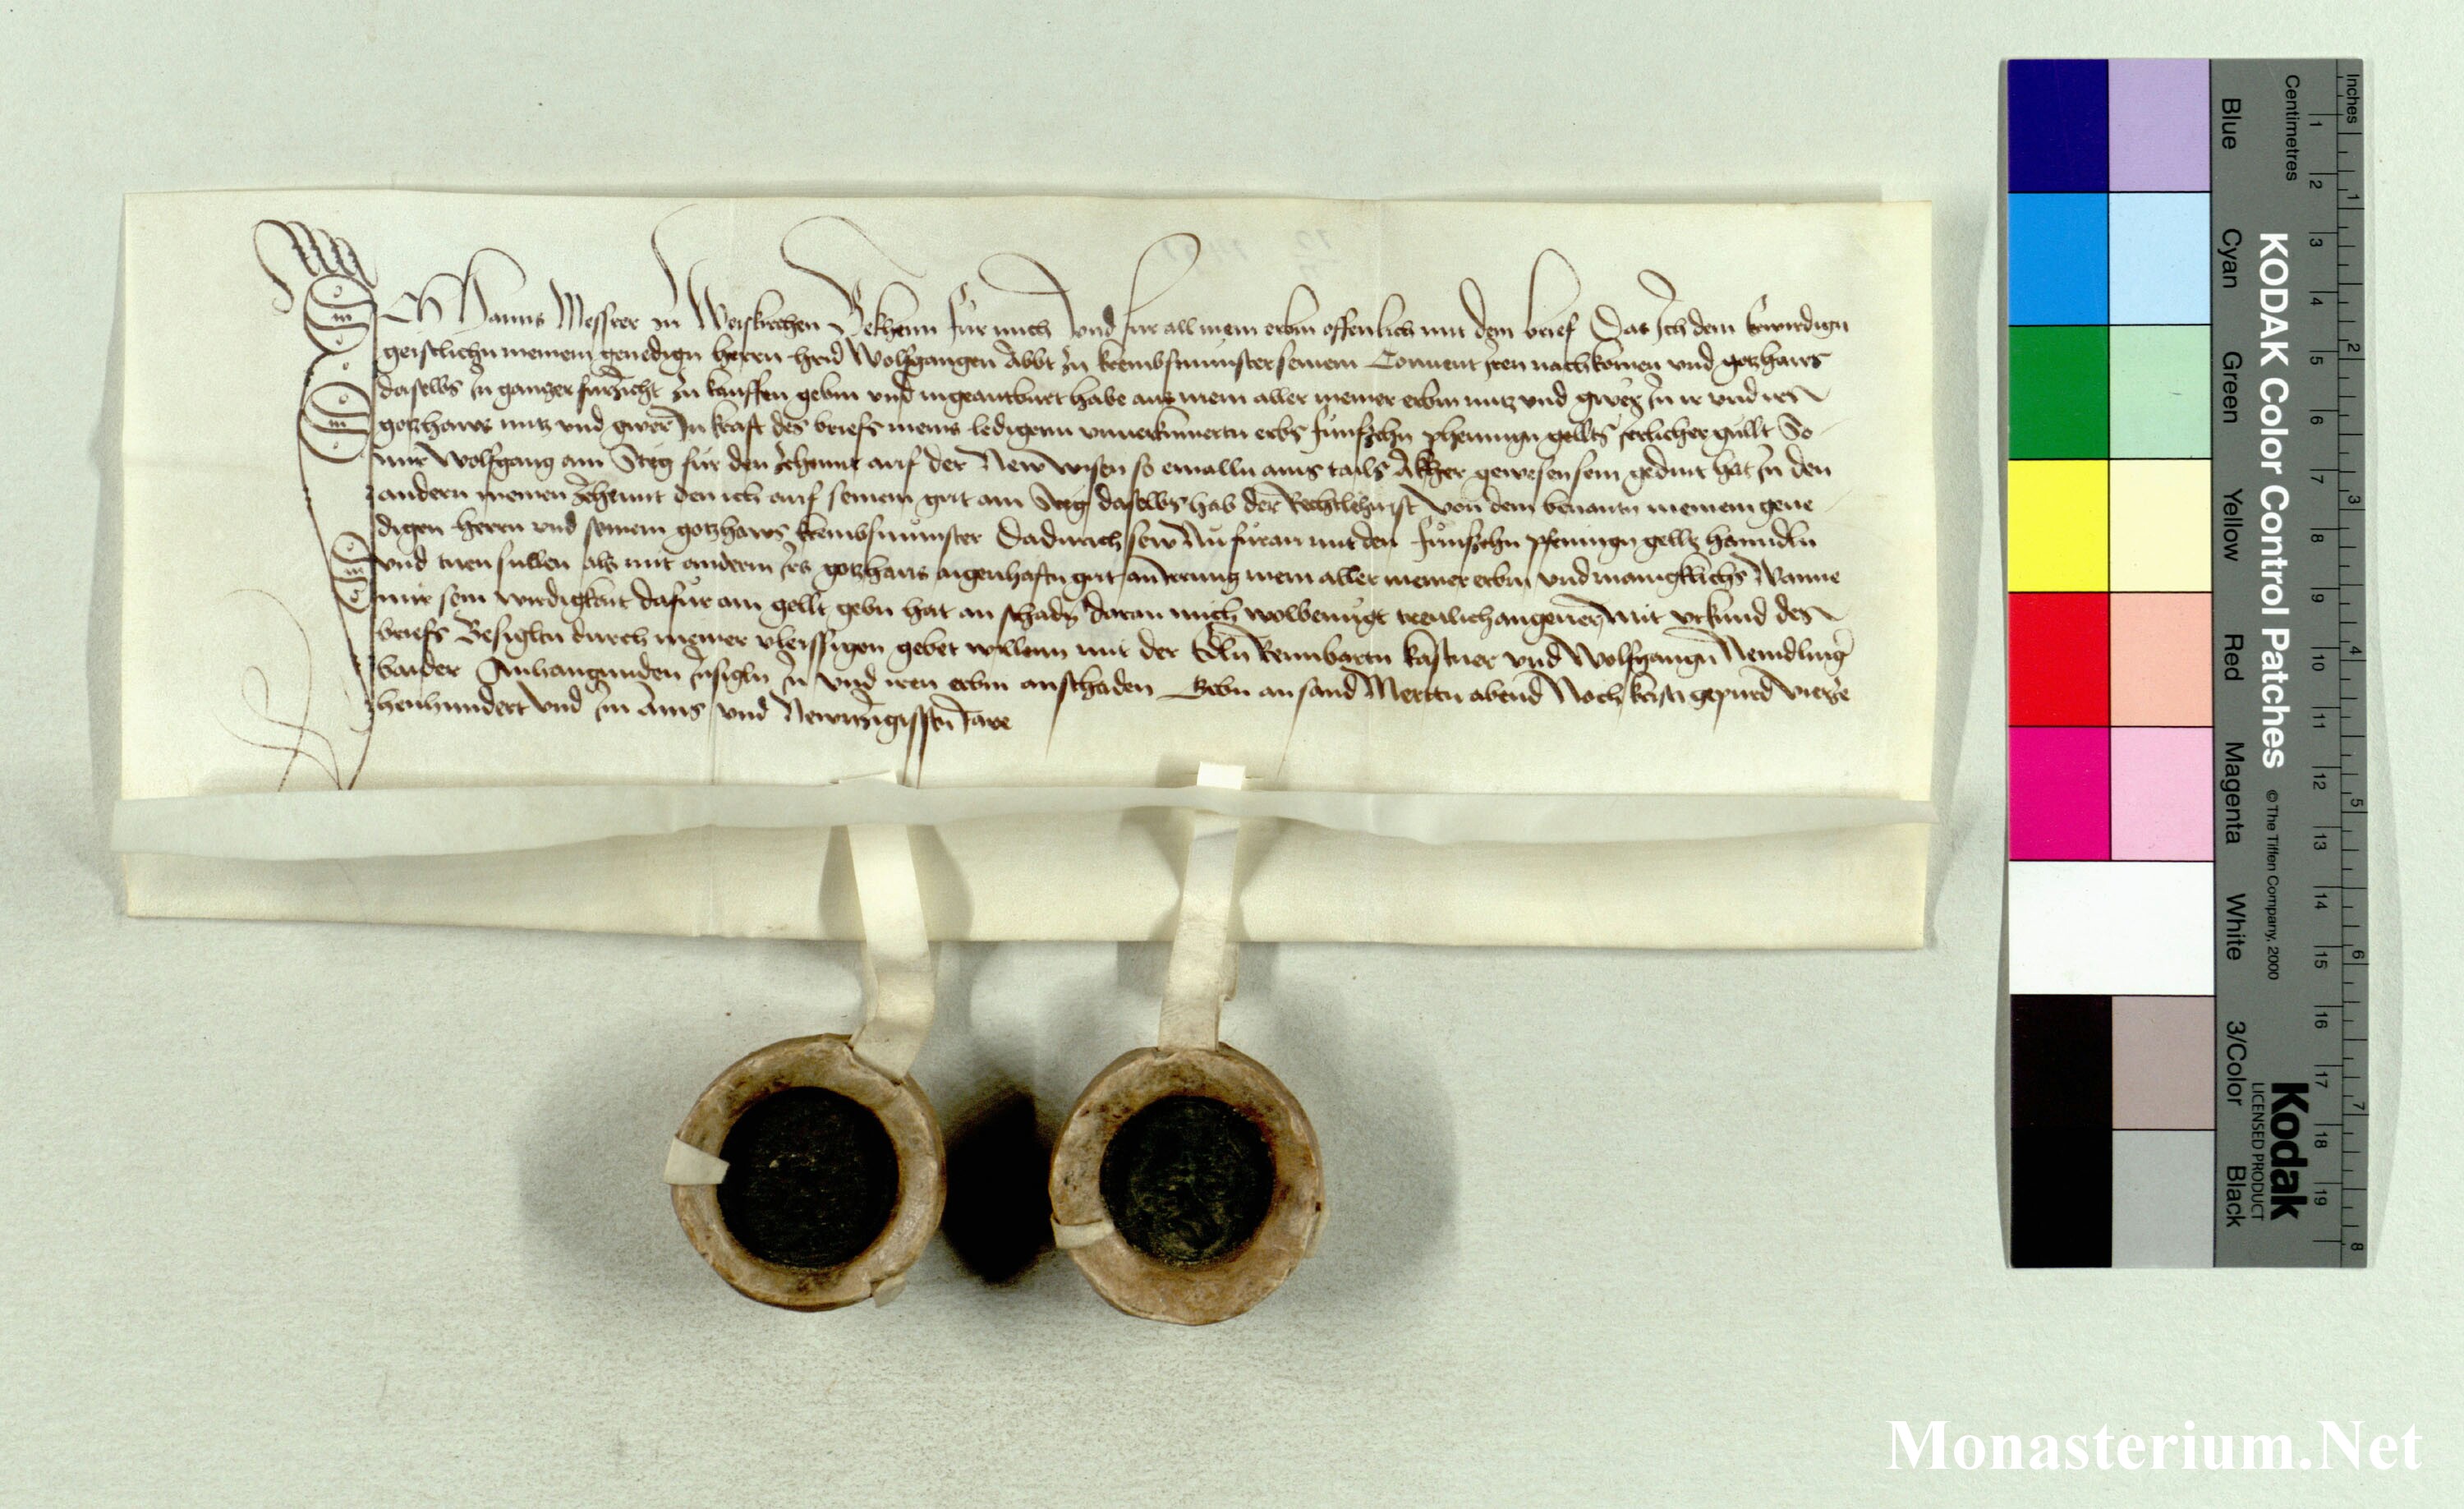 Ich Hanns Messrer zu Weiskirchen Bekhenn fur mich Vnd fur all mein erbm offenlich mit dem brief Das Ich dem Erwirdign
geistlichn meinem genedign herrn hern Wolfgangen Abbt zu krembsmunster seinem Conuent Iren nachkomen vnd gotzhaws
daselbs In ganzer furzicht zu kauffen gebm vnd ingeantburt habe aus mein aller meiner erbm nutz vnd gwer In ir vnd irs
gotzhaws nutz vnd gwer In kraft des briefs meins ledigenn vnuerkumertn erbs funfzehn phennign gellts Ierlicher gullt So
mir Wolfgang am Steg fur den zehennt auf der New wisen so emalln ains tails Akher gewesen sein gedint hat In den
andern meinen zehennt den ich auf seinem gut am Steg daselbs hab der Rechtlehn ist von dem benantn meinem gene
digen herrn vnd seinem gotzhaws krembsmunster Dadurch sew Nu furan mit den funfzehn pfennign gellts hanndln
vnd tuen sullen als mit anderm irs gotzhaus aigenhaftn gut an irrung mein aller meiner erbm vnd manigklichs Wanne
mir sein wirdigkait dafur ain gellt gebn hat an schadn daran mich wolbenugt treulich angeuer Mit vrkund des
briefs Besigltn durch meiner vleissigen gebet willenn mit der Edln Rennbartn kastner vnd Wolfgangn Neundlinger
baider Anhangunden Insigln In vnd iren erbm an schaden Gebn an sand Merttn abend Nach kristi gepurd vierze
henhundert vnd In ains vnd Newnzigisstn Iare
KODAK Color Control Patches
© The Tiffen Company, 2000
Kodak
LICENSED PRODUCT
Inches
Centimetres
1 2 3 4 5 6 7 8 9 10 11 12 13 14 15 16 17 18 19
1 2 3 4 5 6 7 8
Blue
Cyan
Green
Yellow
Red
Magenta
White
3/Color
Black
Monasterium.Net